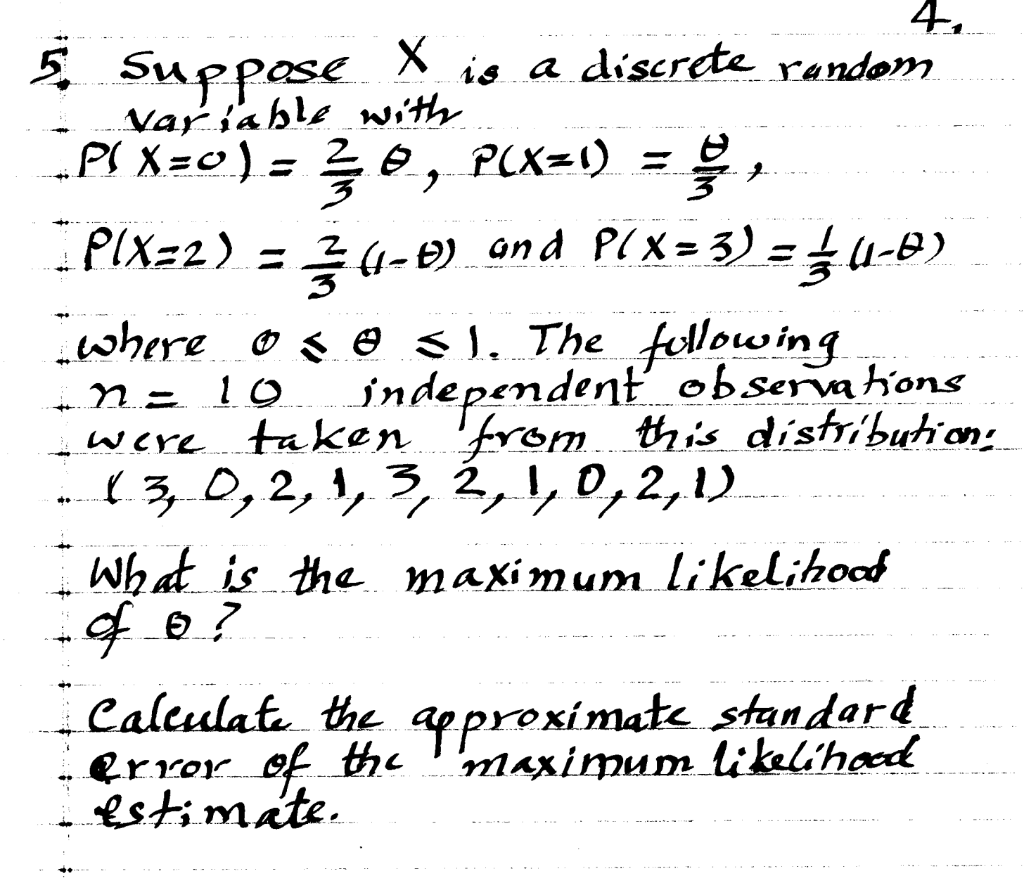 4.
5. Suppose X is a discrete random
variable with
P(X=0) = 2/3 θ, P(X=1) = θ/3,
P(X=2) = 2/3 (1-θ) and P(X=3) = 1/3 (1-θ)
where 0 ≤ θ ≤ 1. The following
n = 10 independent observations
were taken from this distribution:
(3, 0, 2, 1, 3, 2, 1, 0, 2, 1)
What is the maximum likelihood
of θ?
Calculate the approximate standard
error of the maximum likelihood
estimate.